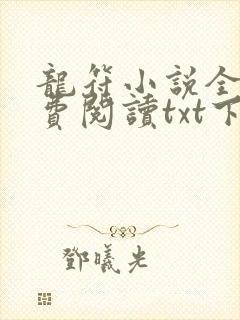 龍符小説全
費閱讀txt下
鄧曦光